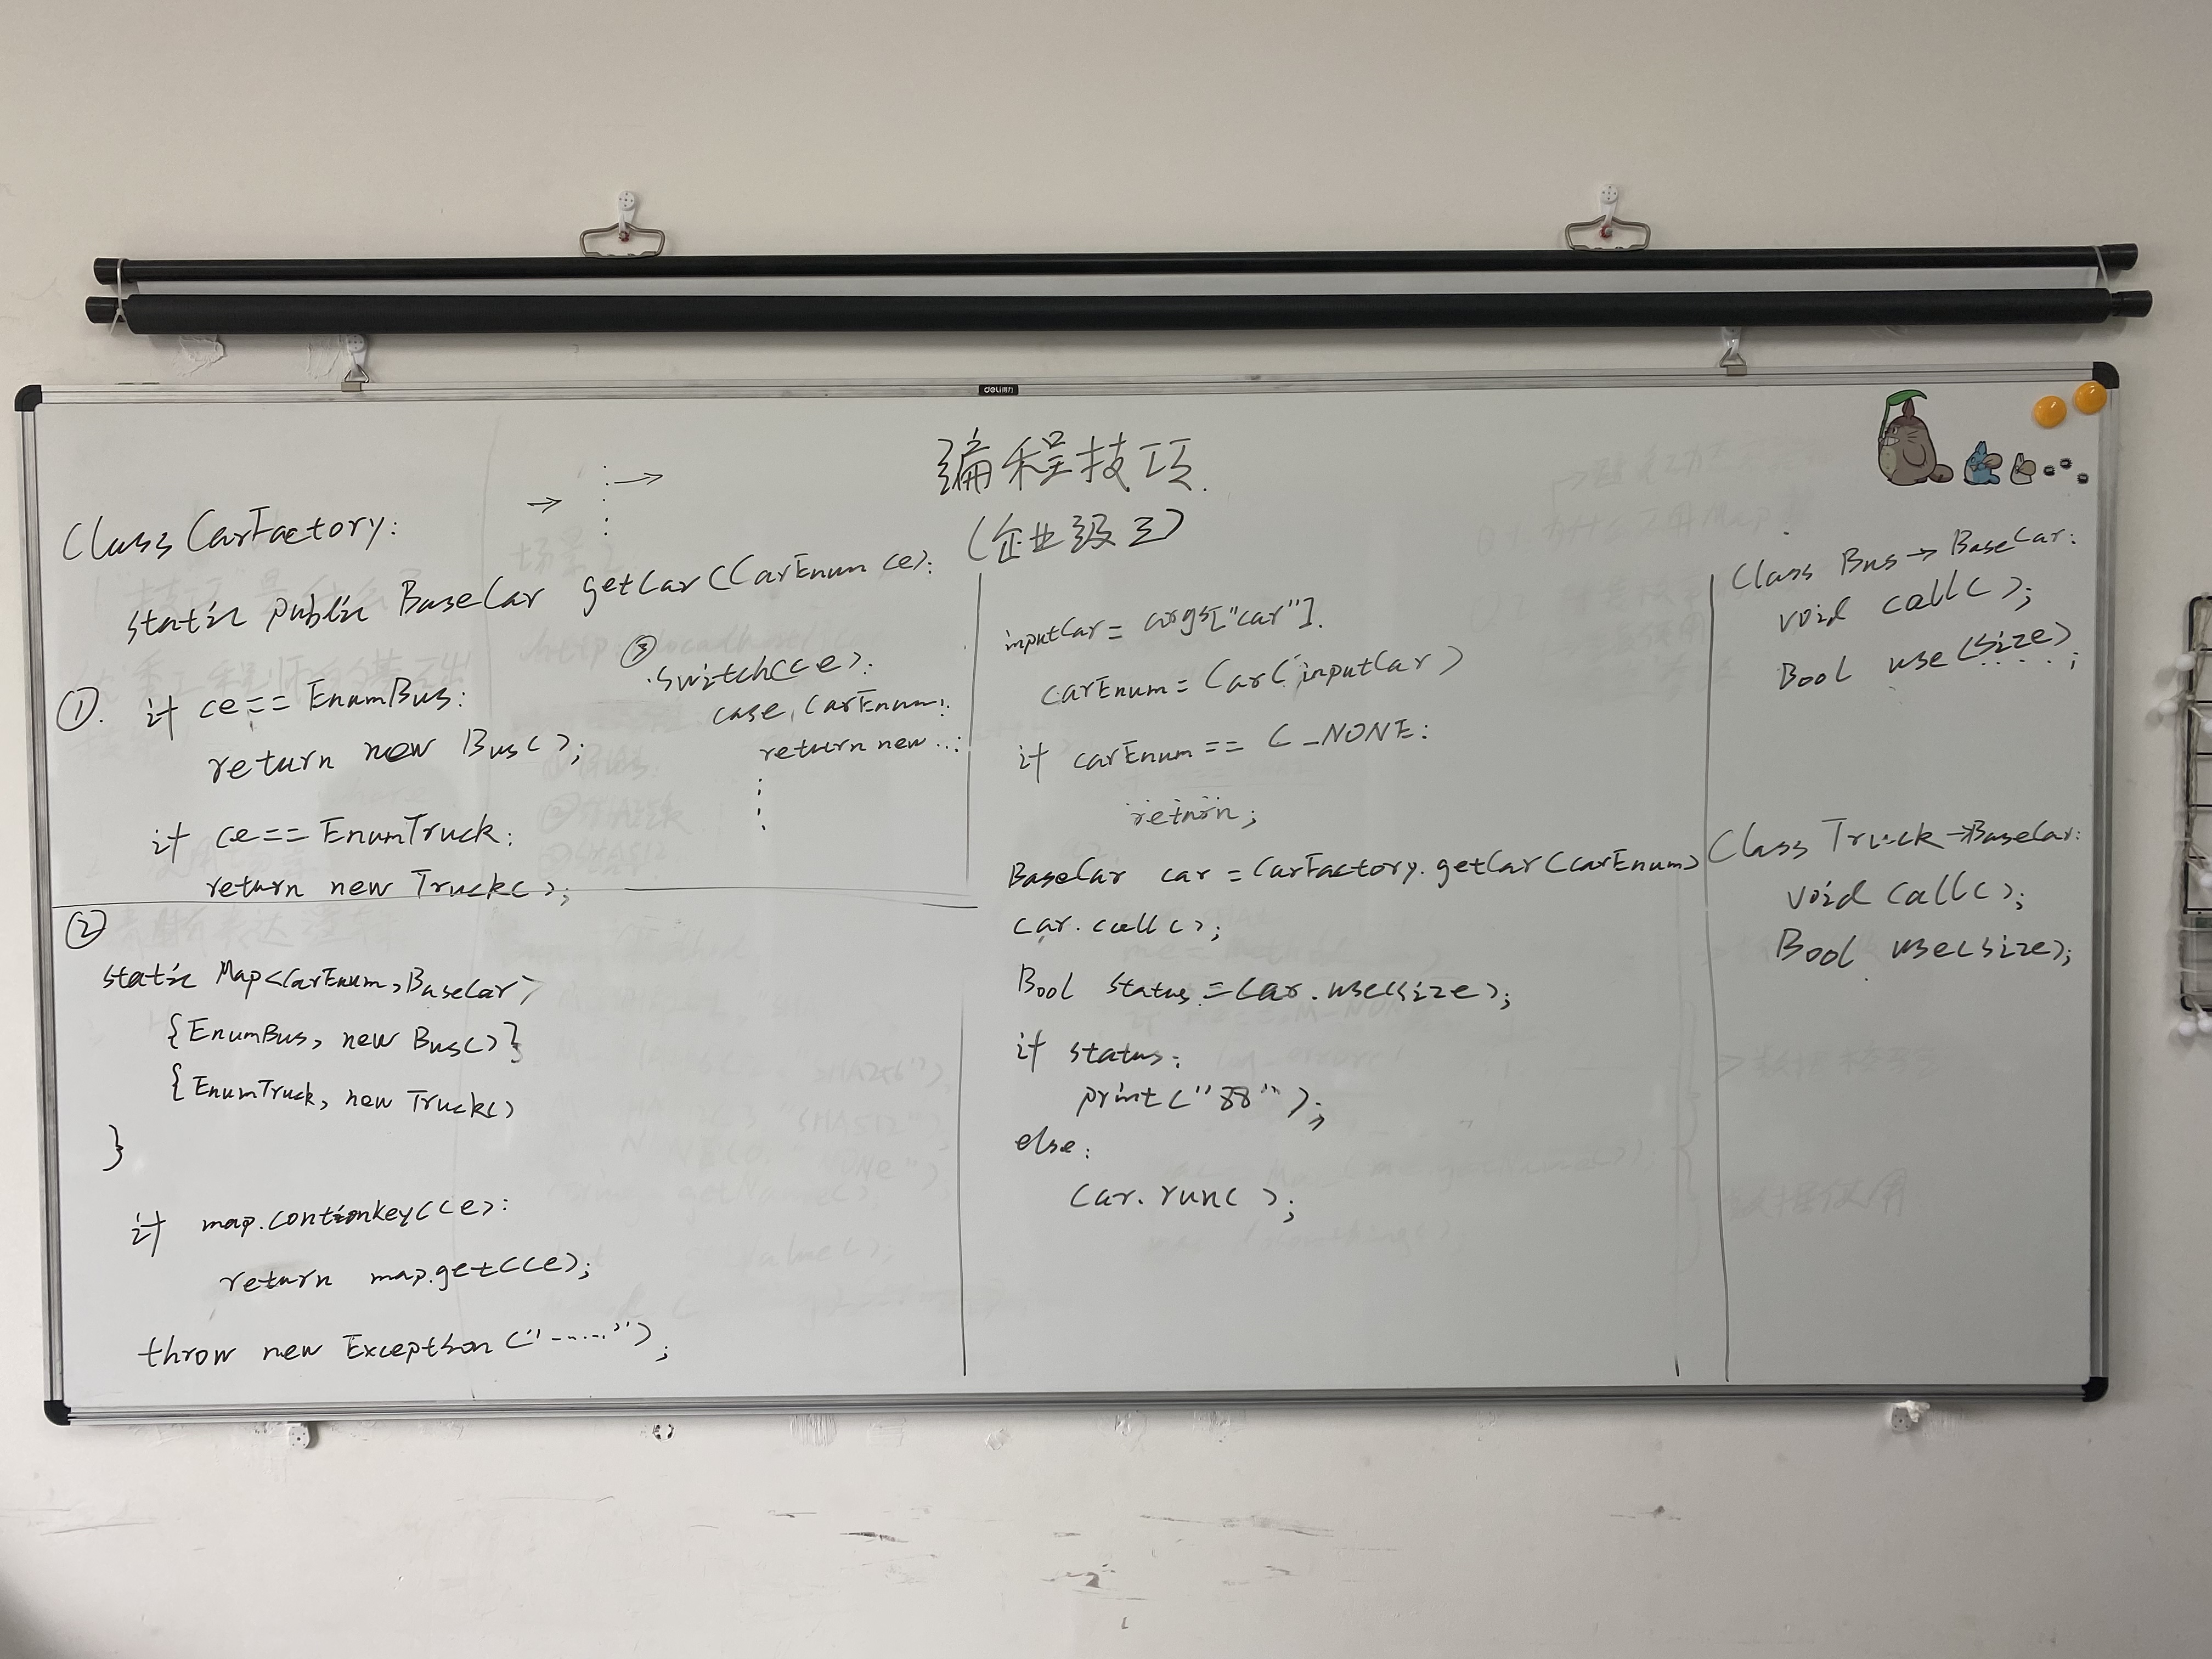 deli得力
编程技巧.
(企业级三)
Class CarFactory:
static public BaseCar getCar(CarEnum ce):
①. if ce == EnumBus:
return new Bus();
if ce == EnumTruck:
return new Truck();
③
switch(ce):
case CarEnum:
return new ...:
②
static Map<CarEnum, BaseCar>
{EnumBus, new Bus()}
{EnumTruck, new Truck()
}
if map.contionkey(ce):
return map.get(ce);
throw new Exception("------");
inputCar = args["car"].
carEnum = Car(inputCar)
if carEnum == C_NONE:
return;
BaseCar car = CarFactory.getCar(carEnum)
car.call();
Bool status = car.use(size);
if status:
print("88");
else:
Car.run();
Class Bus → BaseCar:
void call();
Bool use(size);
Class Truck → BaseCar:
void call();
Bool use(size);